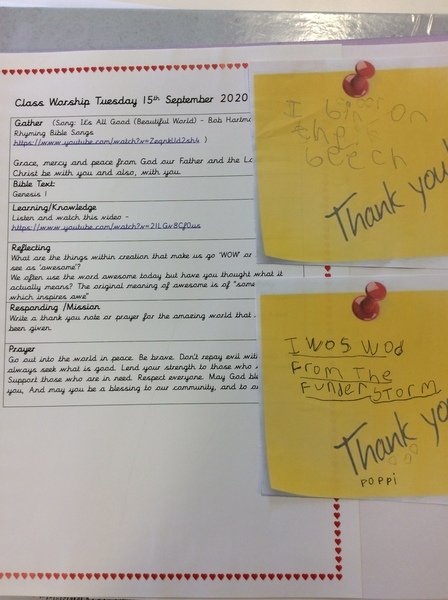 Class Worship Tuesday 15th September 2020
Gather (Song: It's All Good (Beautiful World) - Bob Hartma
Rhyming Bible Songs
https://www.youtube.com/watch?v=ZeqnkUd2sh4 )
Grace, mercy and peace from God our Father and the Lo
Christ be with you and also, with you.
Bible Text:
Genesis 1
Learning/Knowledge
Listen and watch this video -
https://www.youtube.com/watch?v=2ILGv8Cf0us
Reflecting
What are the things within creation that make us go 'WOW' or
see as 'awesome'?
We often use the word awesome today but have you thought what it
actually means? The original meaning of awesome is of "some
which inspires awe"
Responding /Mission
Write a thank you note or prayer for the amazing world that
been given.
Prayer
Go out into the world in peace. Be brave. Don't repay evil with
always seek what is good. Lend your strength to those who
Support those who are in need. Respect everyone. May God ble
you, And may you be a blessing to our community, and to o
I bin on
the
beech
Thank you!
I wos wod
From The
Funder STorm
Thank yo
POPPi